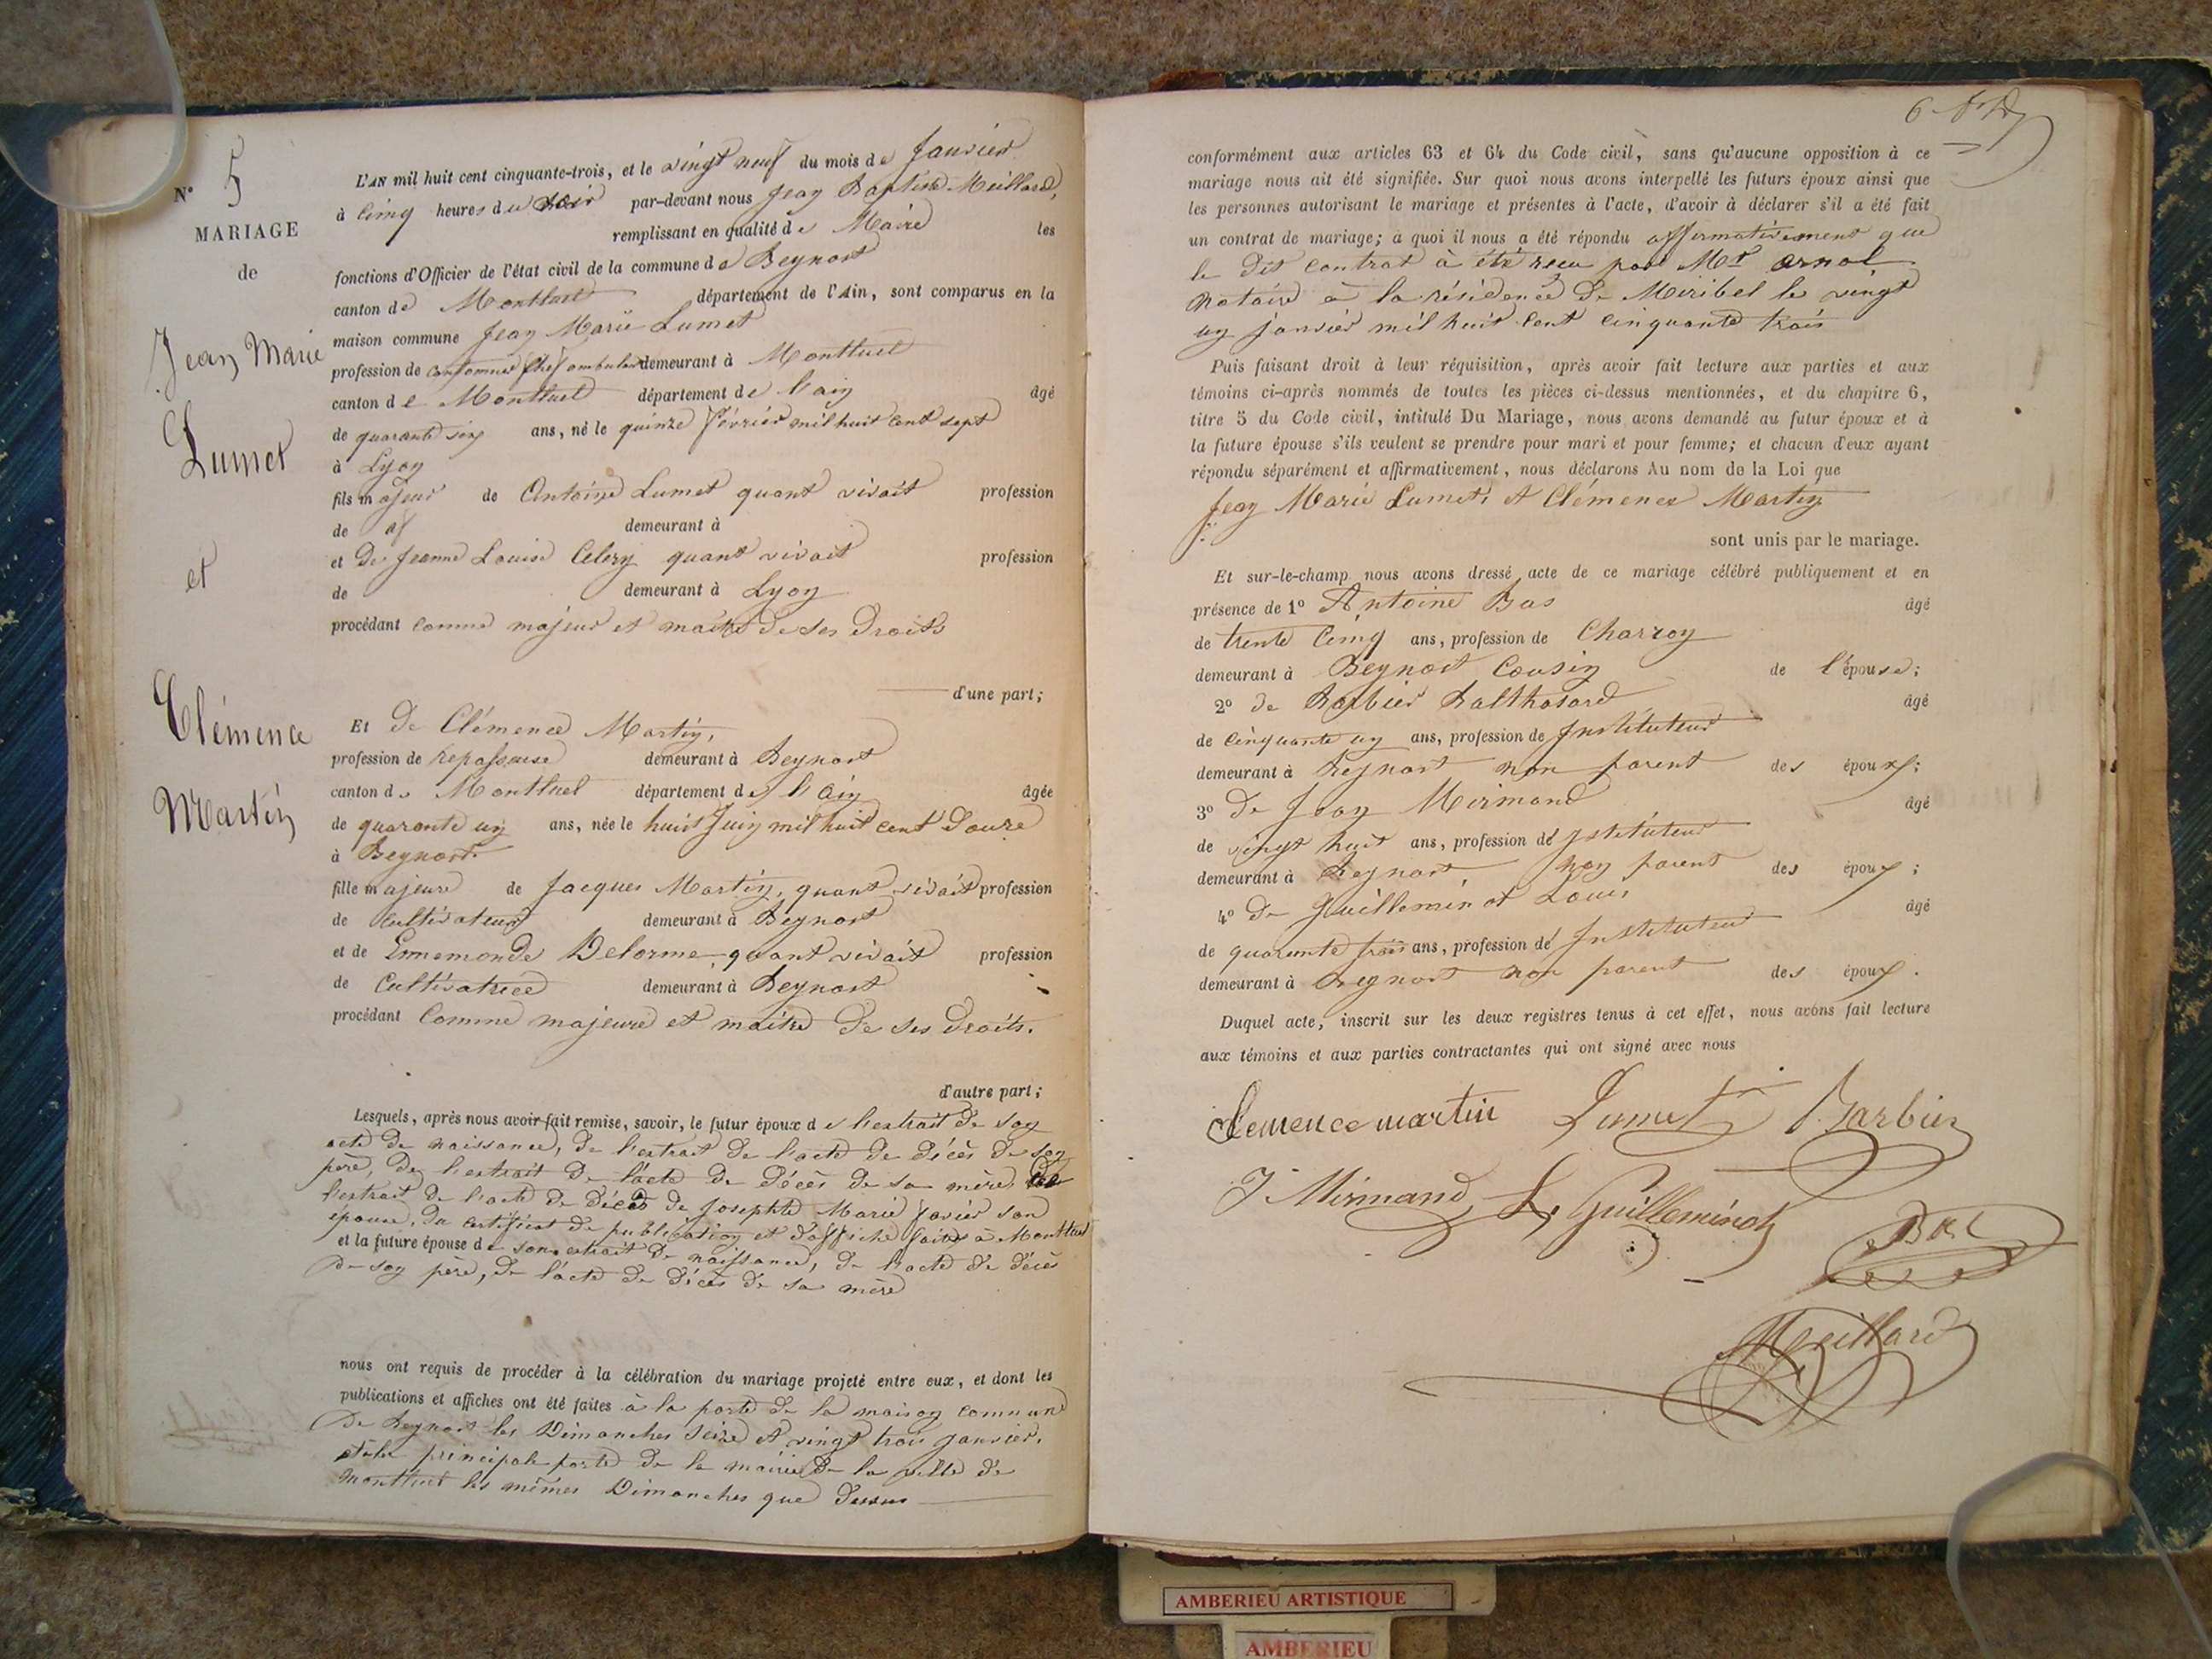 N° 5
MARIAGE
de
Jean Marie
Lumet
et
Clémence
Martin
L'AN mil huit cent cinquante-trois, et le vingt neuf du mois de Janvier
à cinq heures du soir par-devant nous Jean Baptiste Meillard,
remplissant en qualité de Maire les
fonctions d'Officier de l'état civil de la commune de Beynost
canton de Montluel département de l'Ain, sont comparus en la
maison commune Jean Marie Lumet
profession de cantonnier chef ambulant demeurant à Montluel
canton de Montluel département de l'ain âgé
de quarante six ans, né le quinze février mil huit cent sept
à Lyon
fils majeur de Antoine Lumet quant vivait profession
de demeurant à
et De Jeanne Louise Celery quant vivait profession
de demeurant à Lyon
procédant comme majeur et maître de ses Droits
d'une part;
Et De Clémence Martin,
profession de repasseuse demeurant à Beynost
canton de Montluel département de l'ain âgée
de quarante un ans, née le huit Juin mil huit cent Douze
à Beynost.
fille majeure de Jacques Martin, quant vivait profession
de cultivateur demeurant à Beynost
et de Ennemonde Delorme quant vivait profession
de Cultivatrice demeurant à Beynost
procédant Comme majeure et maître De ses Droits.
d'autre part;
Lesquels, après nous avoir fait remise, savoir, le futur époux de l'extrait de son
acte de naissance, de l'extrait de l'acte de décès de son
père, de l'extrait de l'acte de décès de sa mère, de
l'extrait de l'acte de décès de Josephte Marie Javier son
épouse, du certificat de publication et d'affiche faites à Montluel
et la future épouse de son extrait de naissance, de l'acte de décès
de son père, de l'acte de décès de sa mère
nous ont requis de procéder à la célébration du mariage projeté entre eux, et dont les
publications et affiches ont été faites à la porte de la maison commune
de Beynost les Dimanches seize et vingt trois janvier,
et à la principale porte de la mairie de la ville de
Montluel les mêmes Dimanches que dessus
6
conformément aux articles 63 et 64 du Code civil, sans qu'aucune opposition à ce
mariage nous ait été signifiée. Sur quoi nous avons interpellé les futurs époux ainsi que
les personnes autorisant le mariage et présentes à l'acte, d'avoir à déclarer s'il a été fait
un contrat de mariage; à quoi il nous a été répondu affirmativement que
le dit contrat à été reçu par Mt arnol
notaire à la résidence de Miribel le vingt
un janvier mil huit cent cinquante trois
Puis faisant droit à leur réquisition, après avoir fait lecture aux parties et aux
témoins ci-après nommés de toutes les pièces ci-dessus mentionnées, et du chapitre 6,
titre 5 du Code civil, intitulé Du Mariage, nous avons demandé au futur époux et à
la future épouse s'ils veulent se prendre pour mari et pour femme; et chacun d'eux ayant
répondu séparément et affirmativement, nous déclarons Au nom de la Loi que
Jean Marie Lumet, et Clémence Martin
sont unis par le mariage.
Et sur-le-champ nous avons dressé acte de ce mariage célébré publiquement et en
présence de 1° Antoine Bas âgé
de trente cinq ans, profession de Charron
demeurant à Beynost Cousin de l'épouse;
2° de Barbier Balthasard âgé
de cinquante un ans, profession de Instituteur
demeurant à Beynost non parent des époux;
3° De Jean Mirmand âgé
de vingt huit ans, profession de Istituteur
demeurant à Beynost non parent des époux;
4° De Guilleminot Louis âgé
de quarante trois ans, profession de Instituteur
demeurant à Beynost non parent des époux.
Duquel acte, inscrit sur les deux registres tenus à cet effet, nous avons fait lecture
aux témoins et aux parties contractantes qui ont signé avec nous
Clemence martin Lumet Barbier
J. Mirmand L. Guilleminot
Bas
Meillard
AMBERIEU ARTISTIQUE
AMBERIEU